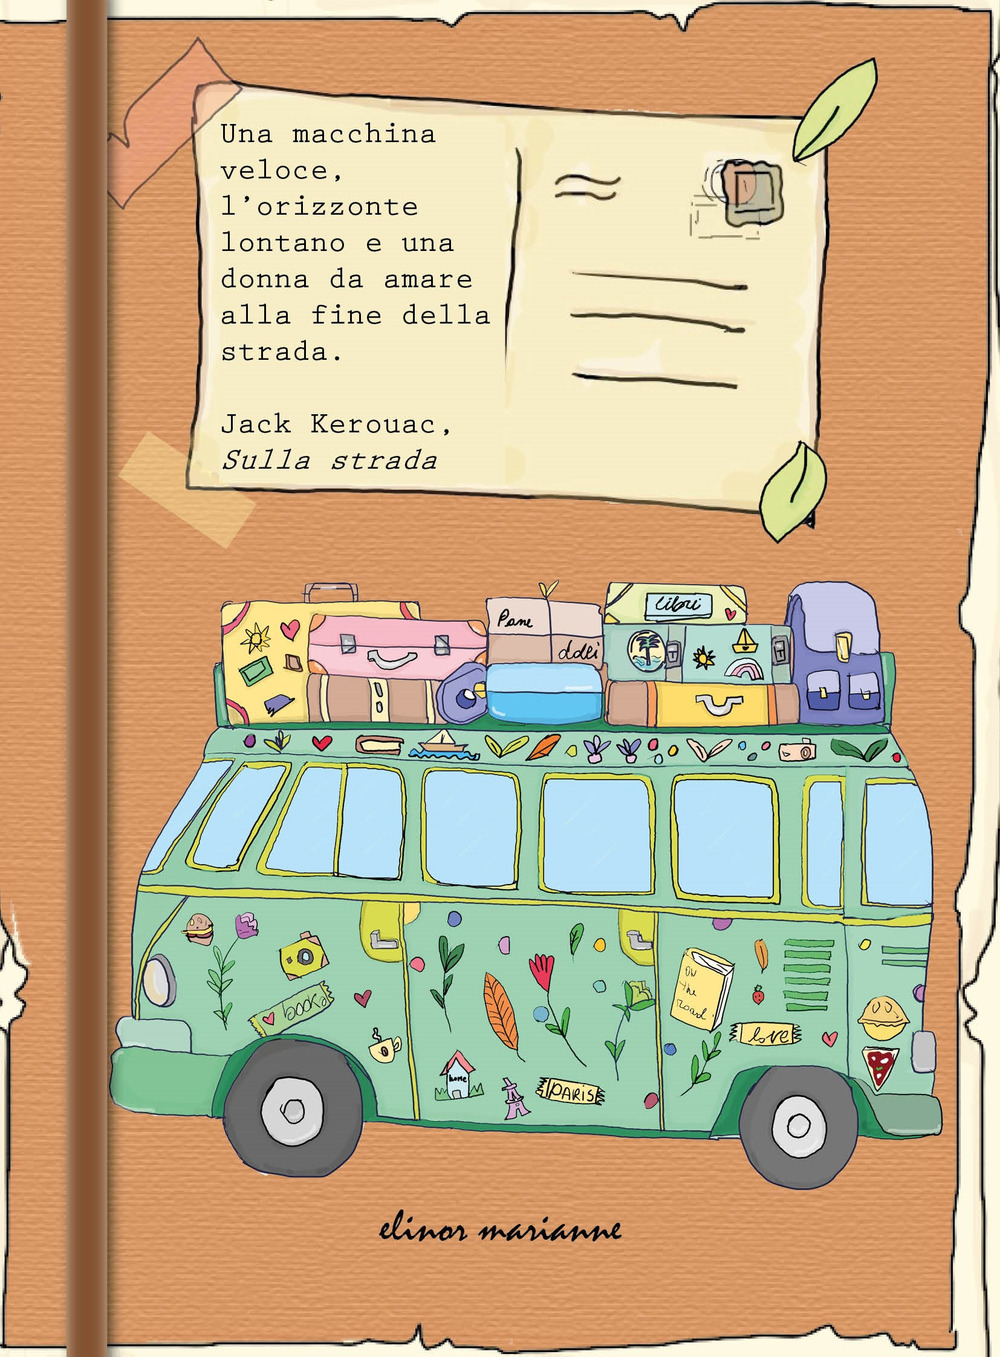 Una macchina
veloce,
l’orizzonte
lontano e una
donna da amare
alla fine della
strada.
Jack Kerouac,
Sulla strada
libri
Pane
dolci
on
the
road
books
love
home
PARIS
elinor marianne